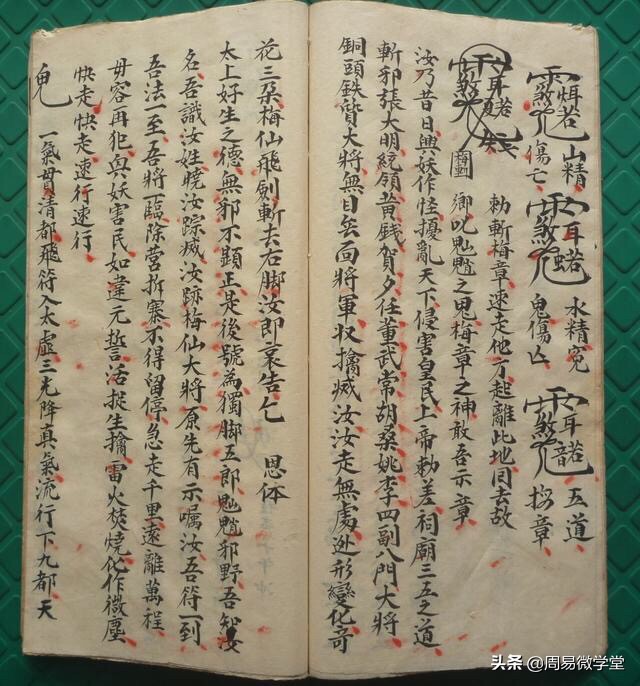 山精
傷亡
水精冤
鬼傷亡
五道
按章
勅斬梅章速走他方起離此地回去故
鄉叱魈魈之鬼梅章之神敢吾示章
汝乃昔日與妖作怪擾亂天下侵害皇民上帝勅差祠廟三五之道
斬邪張大明統領黃錢賀夕任董武常胡桑姚李四副八門大將
銅頭鉄貨大將無目無面將軍収擒滅汝汝走無處逊形變化奇
花三朶梅仙飛劍斬去右脚汝即哀告乞 恩体
太上好生之德無邪不鎖正是後號為獨脚五郎魈魈邪野吾知汝
名吾識汝姓曉汝踪滅汝跡梅仙大將原先有示嘱汝吾符一到
吾法一至吾將一臨除营拆寨不得留停急走千里遠離萬程
毋容再犯與妖害民如違元誓活捉生擒雷火焚燒化作微塵
快走快走速行速行
一氣貫清都飛符入太虛三光降真氣流行下九都天
头条 @周易微学堂